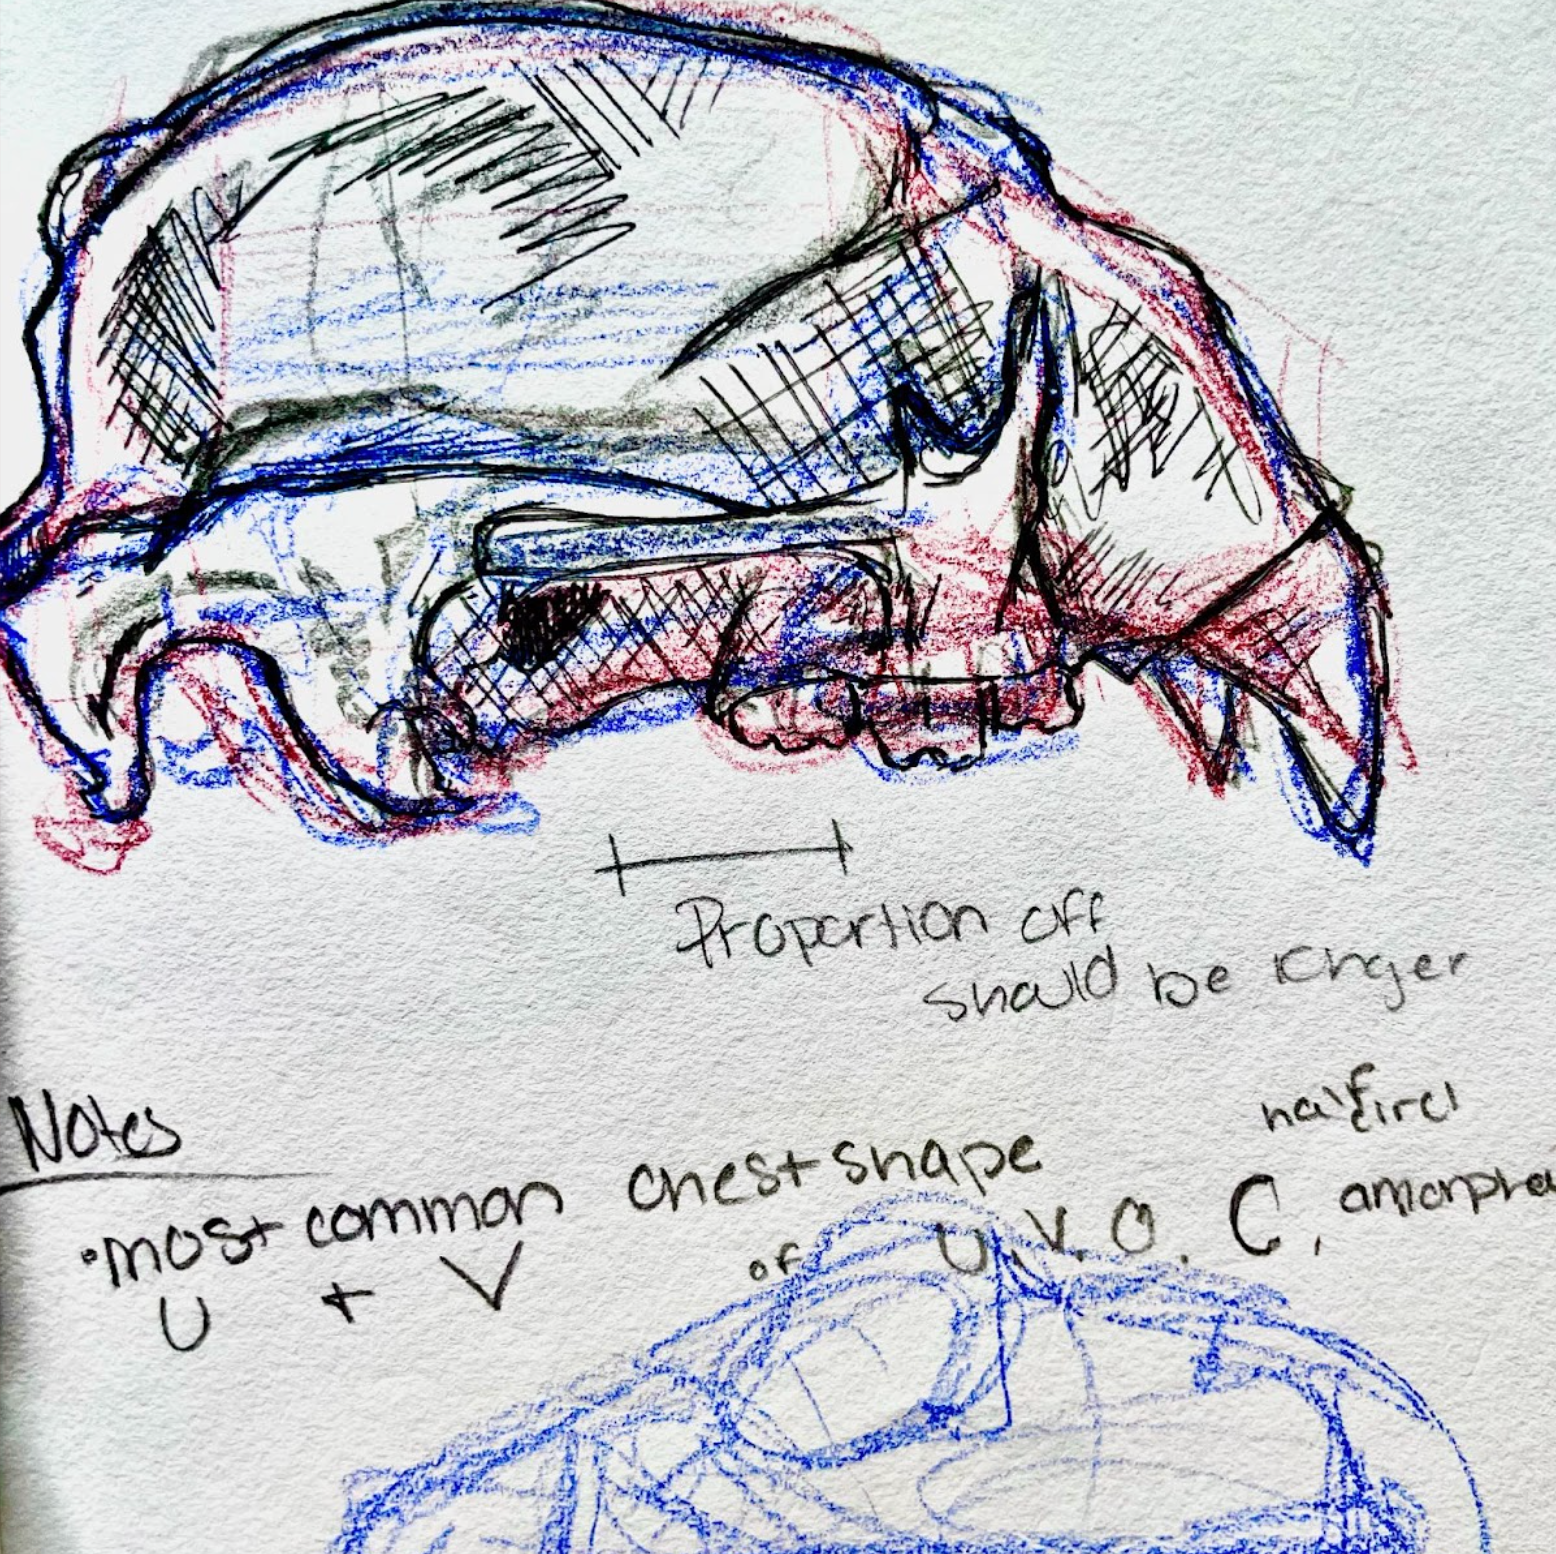 Proportion off
should be longer
Notes
half circl
•most common chest shape of U, V, O, C,
U + V